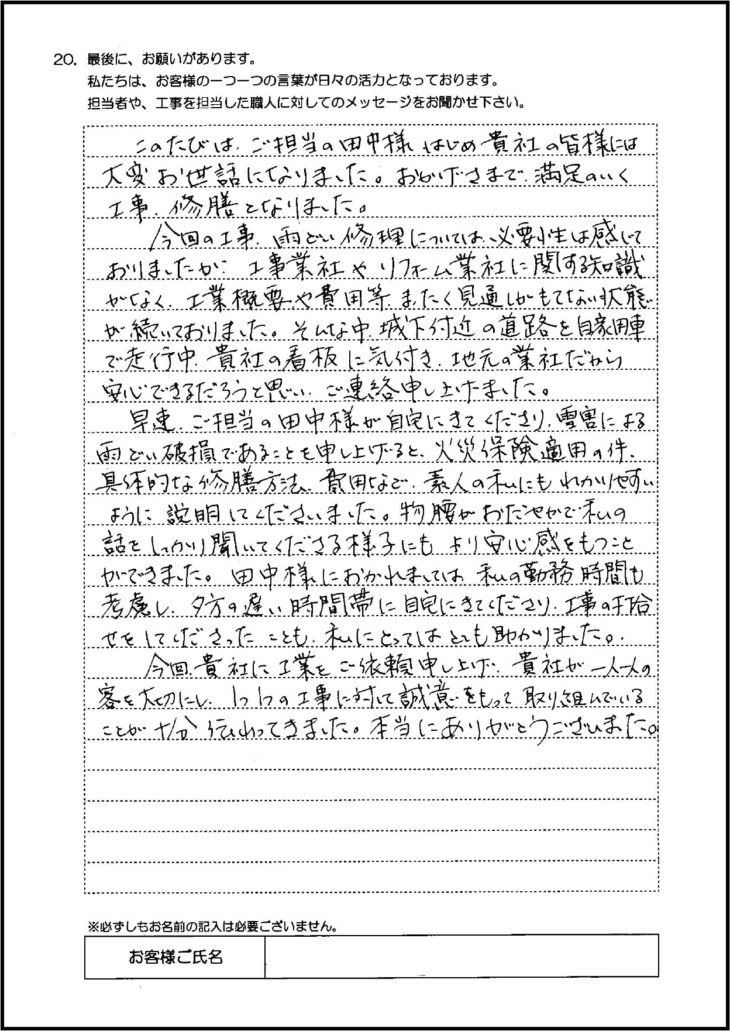 20. 最後に、お願いがあります。
私たちは、お客様の一つ一つの言葉が日々の活力となっております。
担当者や、工事を担当した職人に対してのメッセージをお聞かせ下さい。
このたびは、ご担当の田中様はじめ貴社の皆様には
大変お世話になりました。おかげさまで、満足のいく
工事、修膳となりました。
今回の工事、雨どい修理については、必要性は感じて
おりましたが、工事業社やリフォーム業社に関する知識
がなく、工業概要や費用等、まったく見通しがもてない状態
が続いておりました。そんな中、城下付近の道路を自家用車
で走行中、貴社の看板に気付き、地元の業社だから
安心できるだろうと思い、ご連絡申し上げました。
早速、ご担当の田中様が自宅にきてくださり、雪害による
雨どい破損であることを申し上げると、火災保険適用の件、
具体的な修膳方法、費用など、素人の私にもわかりやすい
ように説明してくださいました。物腰がおだやかで私の
話をしっかり聞いてくださる様子にも、より安心感をもつこと
ができました。田中様におかれましては、私の勤務時間も
考慮し、夕方の遅い時間帯に自宅にきてくださり、工事の打合
せをしてくださったことも、私にとってはとても助かりました。
今回、貴社に工業をご依頼申し上げ、貴社が一人一人の
客を大切にし、1つ1つの工事に対して誠意をもって取り組んでいる
ことが十分伝わってきました。本当にありがとうございました。
※必ずしもお名前の記入は必要ございません。
お客様ご氏名